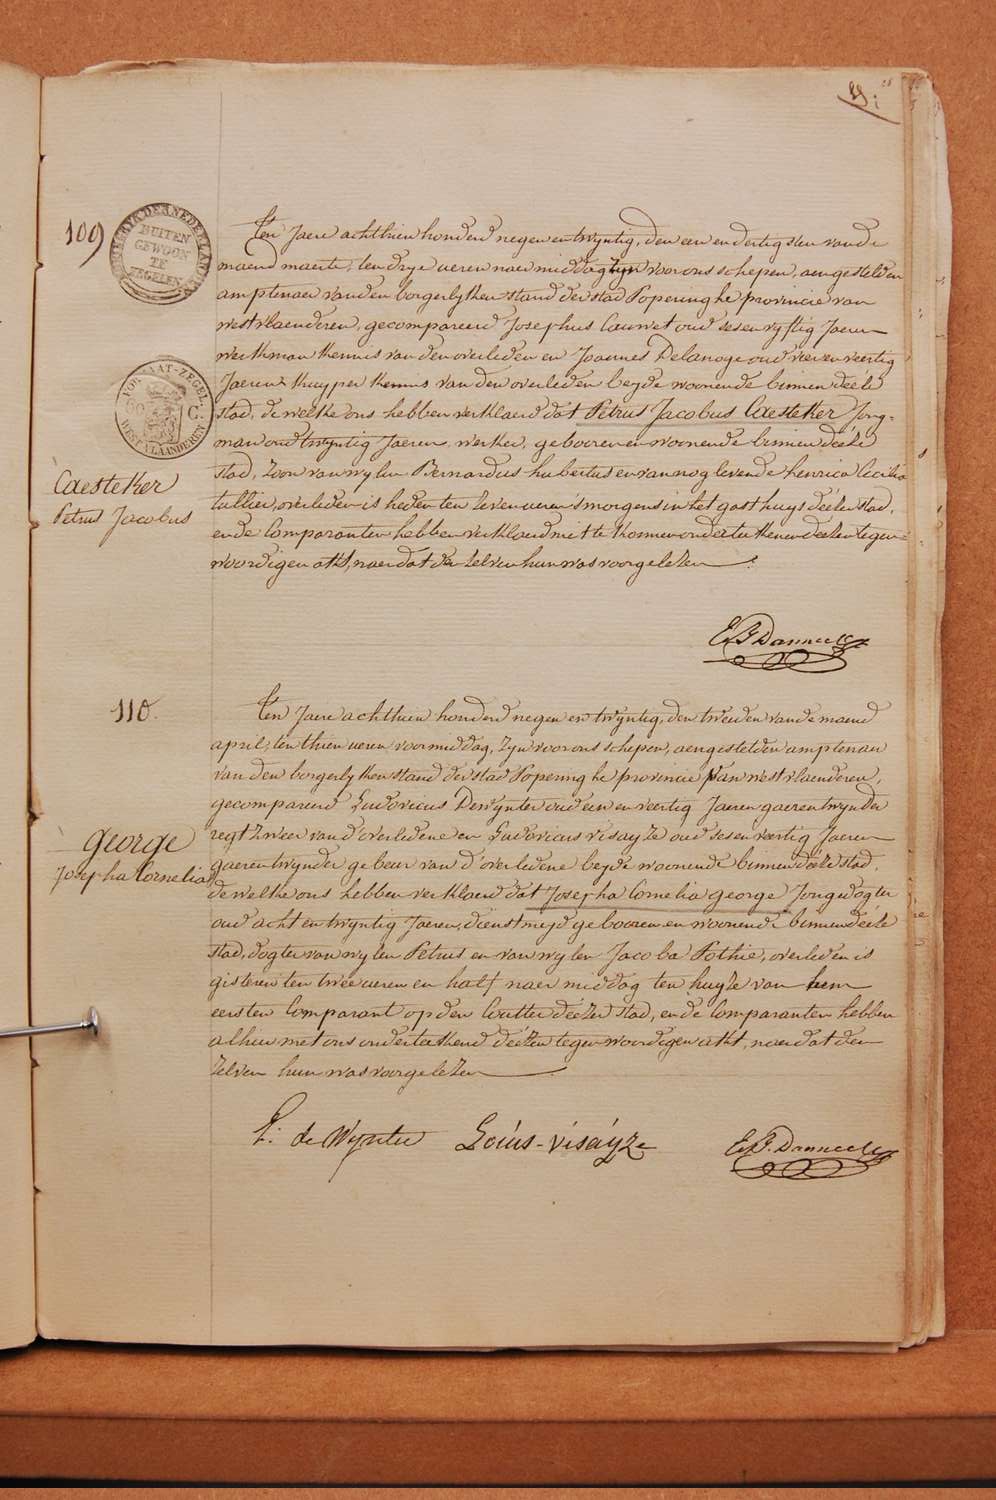 29:
109
KONINGRYK DER NEDERLANDEN
BUITEN
GEWOON
TE
ZEGELEN
FORMAAT-ZEGEL
C.
WEST VLAANDEREN
Caesteker
Petrus Jacobus
Ten Jaere achthien honderd negen en twyntig, den een en dertigsten van de
maend maerte, ten drye ueren naer middag zyn voor ons schepen, aengestelden
amptenaer van den borgerlyken stand der stad Poperinghe provincie van
westvlaenderen, gecompareerd Josephus Cauwet oud ses en vyftig Jaeren
werkman kennis van den overleden en Joannes Delanoge oud vier en veertig
Jaeren kuyper kennis van den overleden beyde woonende binnen deéze
stad, de welke ons hebben verklaerd dat Petrus Jacobus Caesteker Jong-
man oud twyntig Jaeren, werker, gebooren en woonende binnen deéze
stad, zoon van wylen Bernardus hubertus en van nog levende henrica Cecilia
tallier, overleden is heden ten zeven ueren s'morgens in het gasthuys deézer stad,
en de Comparanten hebben verklaerd niet te konnen onderteekenen deézen tegen-
woordigen akt, naer dat den zelven hun was voorgelezen.
110.
George
Josepha Cornelia
Ten Jaere achthien honderd negen en twyntig, den tweeden van de maend
april, ten thien ueren voormiddag, zyn voor ons schepen, aengestelden amptenaer
van den borgerlyken stand der stad Poperinghe provincie van westvlaenderen,
gecompareerd Ludovicus Dewynter oud een en veertig Jaeren gaerentwynder
regtzweer van d'overledene en Ludovicus visayze oud ses en veertig Jaeren
gaerentwynder gebeur van d'overledene beyde woonende binnen deéze stad,
de welke ons hebben verklaerd dat Josepha Cornelia george Jongedogter
oud acht en twyntig Jaeren, dienstmeyd gebooren en woonende binnen deéze
stad, dogter van wylen Petrus en van wylen Jacoba Pothie, overleden is
gisteren ten twee ueren en half naer middag ten huyze van hem
eersten Comparant op den Coutter deézer stad, en de Comparanten hebben
alhier met ons onderteekend deézen tegenwoordigen akt, naer dat den
zelven hun was voorgelezen
L: de Wynter Loúis-visáyze